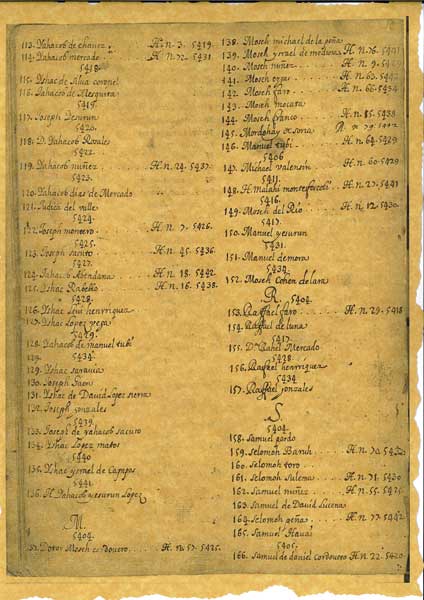 113. Yahacob de chavez . . . . H. n. 3. 5419.
114. Yahacob mercado . . . . H. n. 72. 5431.
5418.
115. Yshac de Silva coronel
116. Yahacob de Mesquita
5419.
117. Joseph Jesurun
5420.
118. D. Yahacob Rosales
5422.
119. Yahacob nuñez . . . . H. n. 24. 5437.
5423.
120. Yahacob dias de Mercado
121. Judica del valle
5424.
122. Joseph montero . . . . H. n. 7. 5426.
5425.
123. Joseph . . . . H. n. 45. 5436.
5427.
124. Yahacob Abendana . . . . H. n. 18. 5442.
125. Yshac Rabello . . . . H. n. 16. 5438.
5428.
126. Yshac Levi henrriquez
127. Yshac Lopez vega
5429.
128. Yahacob de manuel tubi
129. 5434.
129. Yshac saravia
130. Joseph Jaen
131. Yshac de David Lopez sierra
132. Joseph gonzales
5439.
133. Joseph de yahacob
134. Yshac Lopez matos
5440
135. Yshac ysrael de Campos
5441.
136. H. Yahacob yesurun Lopez
M.
5404.
137. Dotor Moseh cordovero . . . . H. n. 57. 5425.
138. Moseh michael de la peña
139. Moseh ysrael de medina . . H. n. 76.
140. Moseh nuñez . . . . H. n. 9.
141. Moseh . . . . H. n. 63.
142. Moseh faro . . . . H. n. 66. 5434
143. Moseh mocata
144. Moseh franco . . . . H. n. 85. 5438
145. Mordohay de soria
146. Manuel tubi . . . . H. n. 64. 5429
5406
147. Michael valensin . . . . H. n. 60. 5429
5411.
148. H. Malahi montefoscoli . . H. n. 27. 5441
5416.
149. Moseh del Rio . . . . H. n. 12. 5430
5417.
150. Manuel yesurun
5431.
151. Manuel demora
5432.
152. Moseh Cohen de lara
R. 5404.
153. Raffael faro . . . . H. n. 29. 5418
154. Raffael de luna
5417
155. Dª Rahel Mercado
5428
156. Raffael henrriquez
5434
157. Raffael gonzales
S
5404.
158. Samuel pardo
159. Selomoh Baruh . . . . H. n.
160. Selomoh toro
161. Selomoh Sulema . . . . H. n. 71. 5430
162. Samuel nuñez . . . . H. n. 55. 5425
163. Samuel de David Lucena
164. Selomoh . . . . H. n. 77. 5442
165. Samuel
5405.
166. Samuel de daniel cordovero H. n. 22. 5420